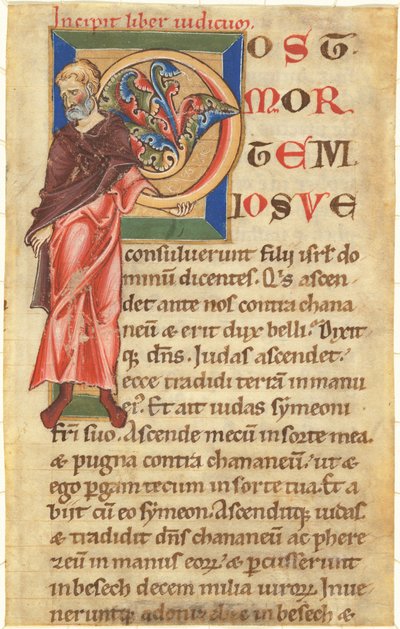 Incipit liber iudicum.
POST
MOR
TEM
IOSVE
consuluerunt filij isrł do
minū dicentes. Q̄s ascen
det ante nos contra chana
neū & erit dux belli? Dixit
q; dn̄s. Iudas ascendet.
ecce tradidi terrā in manu
ei᷒. Et ait iudas symeoni
fr̄i suo. Ascende mecū in sorte mea.
& pugna contra chananeū. ut &
ego ꝑgam tecum in sorte tua. Et a
bijt cū eo symeon. Ascenditq; iudas.
& tradidit dn̄s chananeū ac phere
zeū in manus eoꝝ. & percusserunt
in besech decem milia uiroꝝ. Inue
neruntq; in besech &